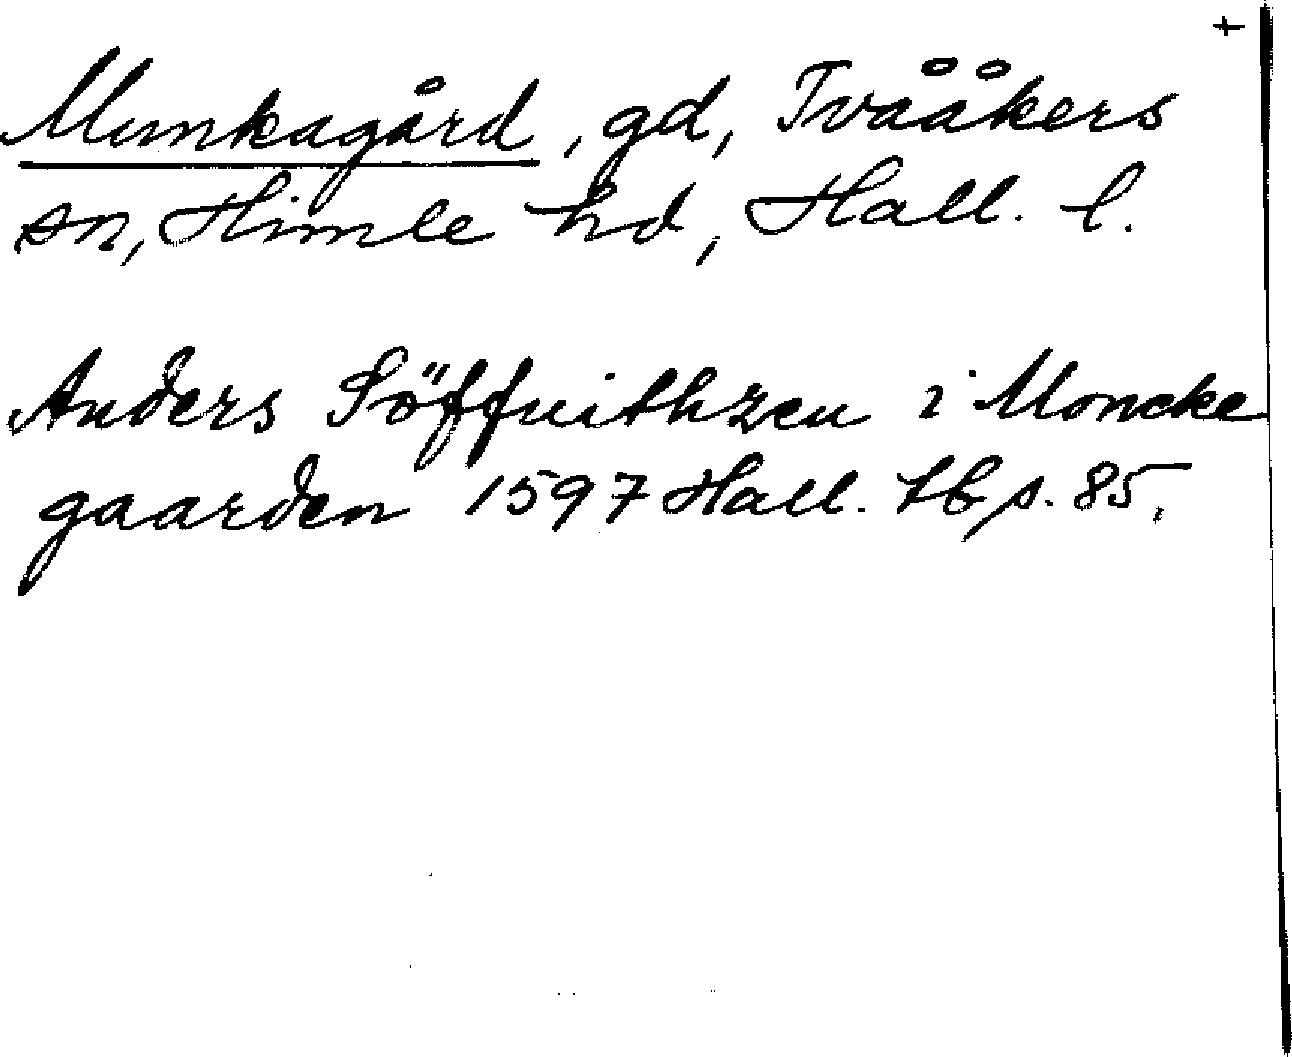 +
Munkagård, gd, Tvååkers
sn, Himle hd, Hall. l.
Anders Söffuithzen i Moncke
gaarden 1597 Hall. tb p. 85.